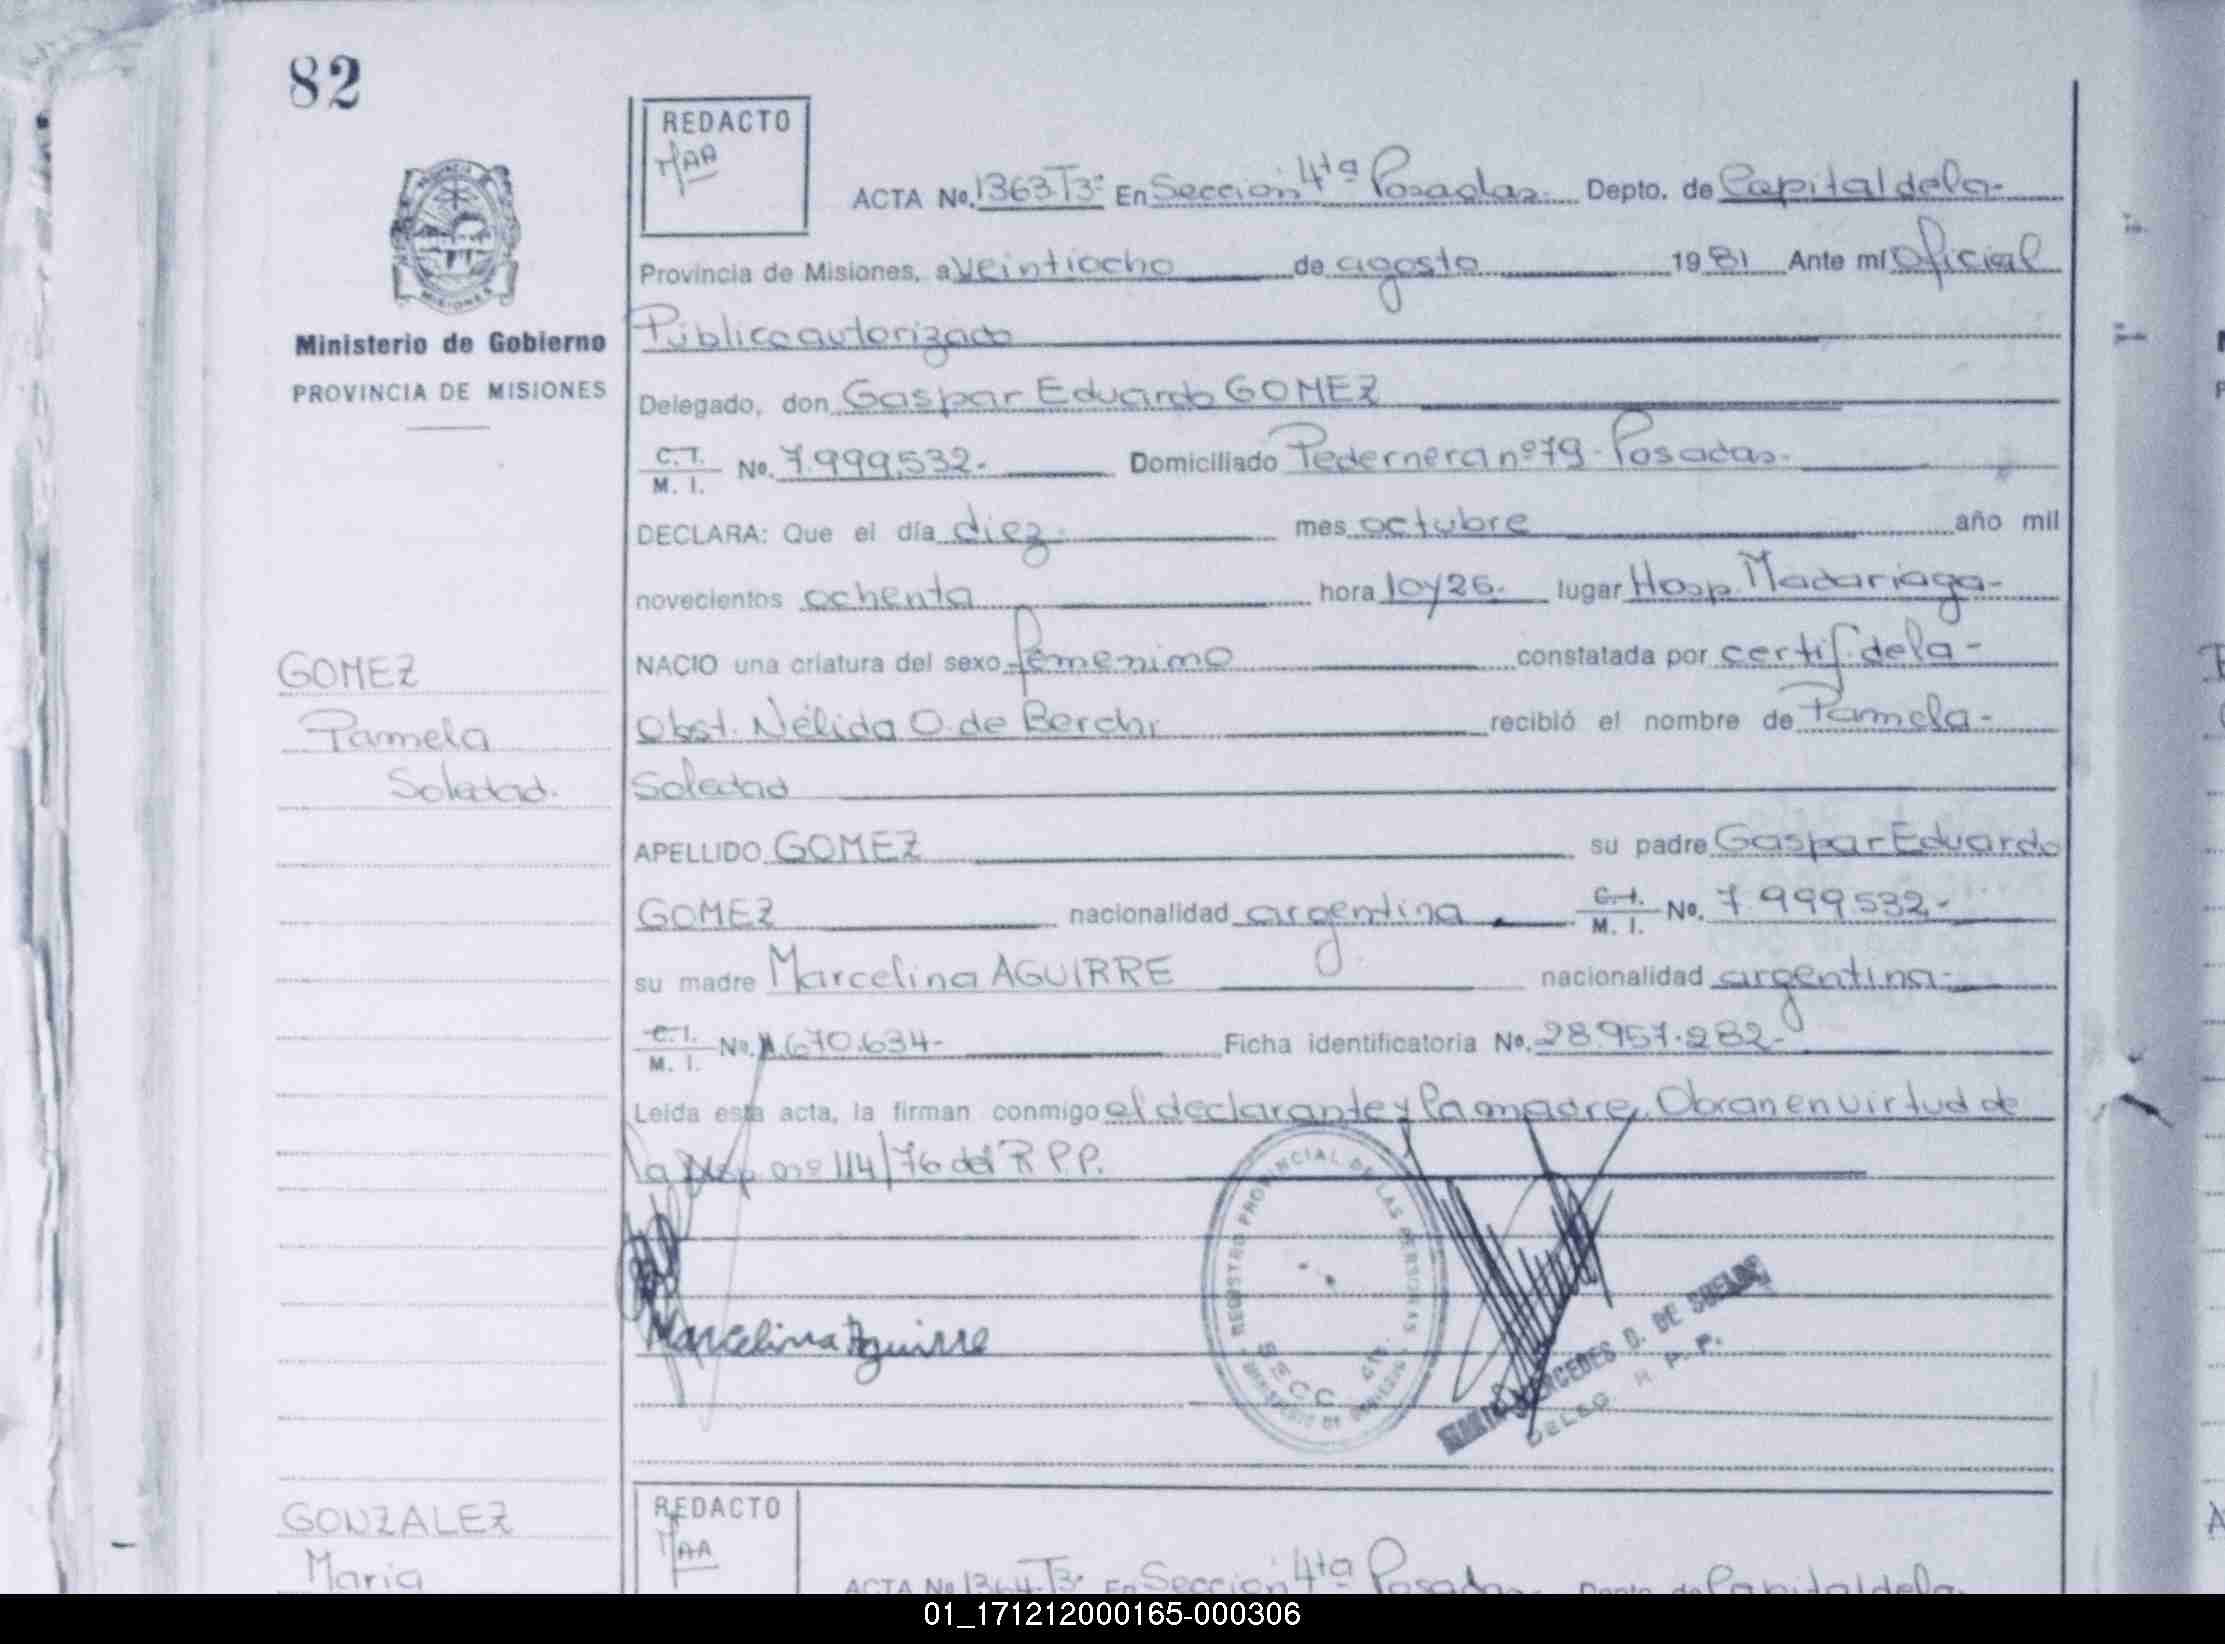 82
REDACTO
MAA
ACTA No. 1363.T3º En Sección 4ta Posadas.- Depto. de Capital de la-
Provincia de Misiones, a veintiocho de agosto 1981 Ante mí Oficial
Ministerio de Gobierno
PROVINCIA DE MISIONES
Público autorizado
Delegado, don Gaspar Eduardo GOMEZ
C.I. M. I. No. 7.999.532.- Domiciliado Pedernera nº79- Posadas.-
DECLARA: Que el día diez- mes octubre año mil
novecientos ochenta hora 10y26.- lugar Hosp. Madariaga-
NACIO una criatura del sexo femenino constatada por certif. de la-
Obst. Nélida O. de Berchi recibió el nombre de Pamela-
Soledad
GOMEZ
Pamela
Soledad.
APELLIDO GOMEZ su padre Gaspar Eduardo
GOMEZ nacionalidad argentina C.I. M. I. No. 7.999.532.-
su madre Marcelina AGUIRRE nacionalidad argentina-
C.I. M. I. No. 670.634- Ficha identificatoria No. 28.957.282-
Leída esta acta, la firman conmigo el declarante y la madre. Obran en virtud de
la Disp. nº 114/76 del R.P.P.
Marcelina Aguirre
REGISTRO PROVINCIAL DE LAS PERSONAS
SECC. 4ta.
MINISTERIO DE GOBIERNO
MERCEDES D. DE
DELEG. R. P. P.
GONZALEZ
Maria
REDACTO
MAA
ACTA No 1364.T3º En Sección 4ta Posadas. Depto. de Capital de la
01_171212000165-000306